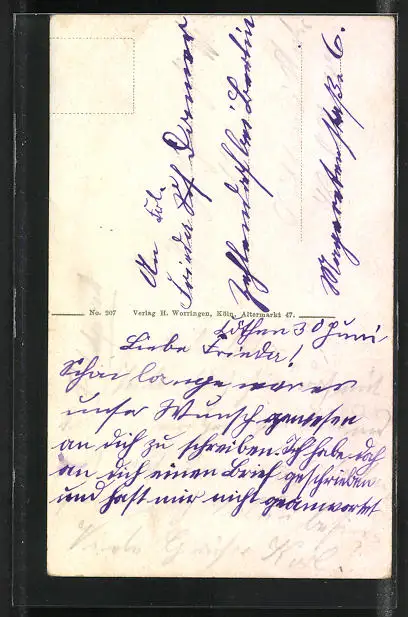 An Frl.
Frieda
Zehlendorf bei Berlin
Margaretenstraße 6.
No. 207 Verlag H. Worringen, Köln, Altermarkt 47.
Cöthen 30 Juni
Liebe Frieda!
Schon lange war es
unser Wunsch gewesen
an dich zu schreiben. Ich habe doch
an dich einen Brief geschrieben
und hast mir nicht geantwortet